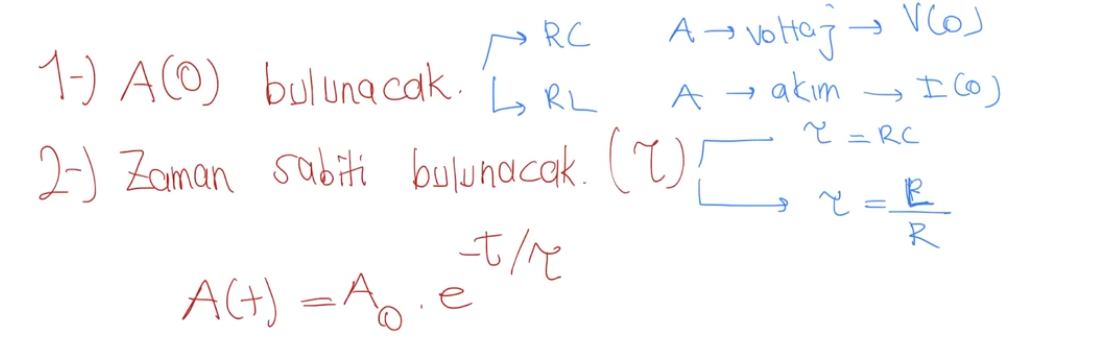 1-) A(0) bulunacak. → RC A → voltaj → V(0)
→ RL A → akım → I(0)
2-) Zaman sabiti bulunacak. (τ) τ = RC
→ τ = L/R
A(t) = A₀ . e^(-t/τ)